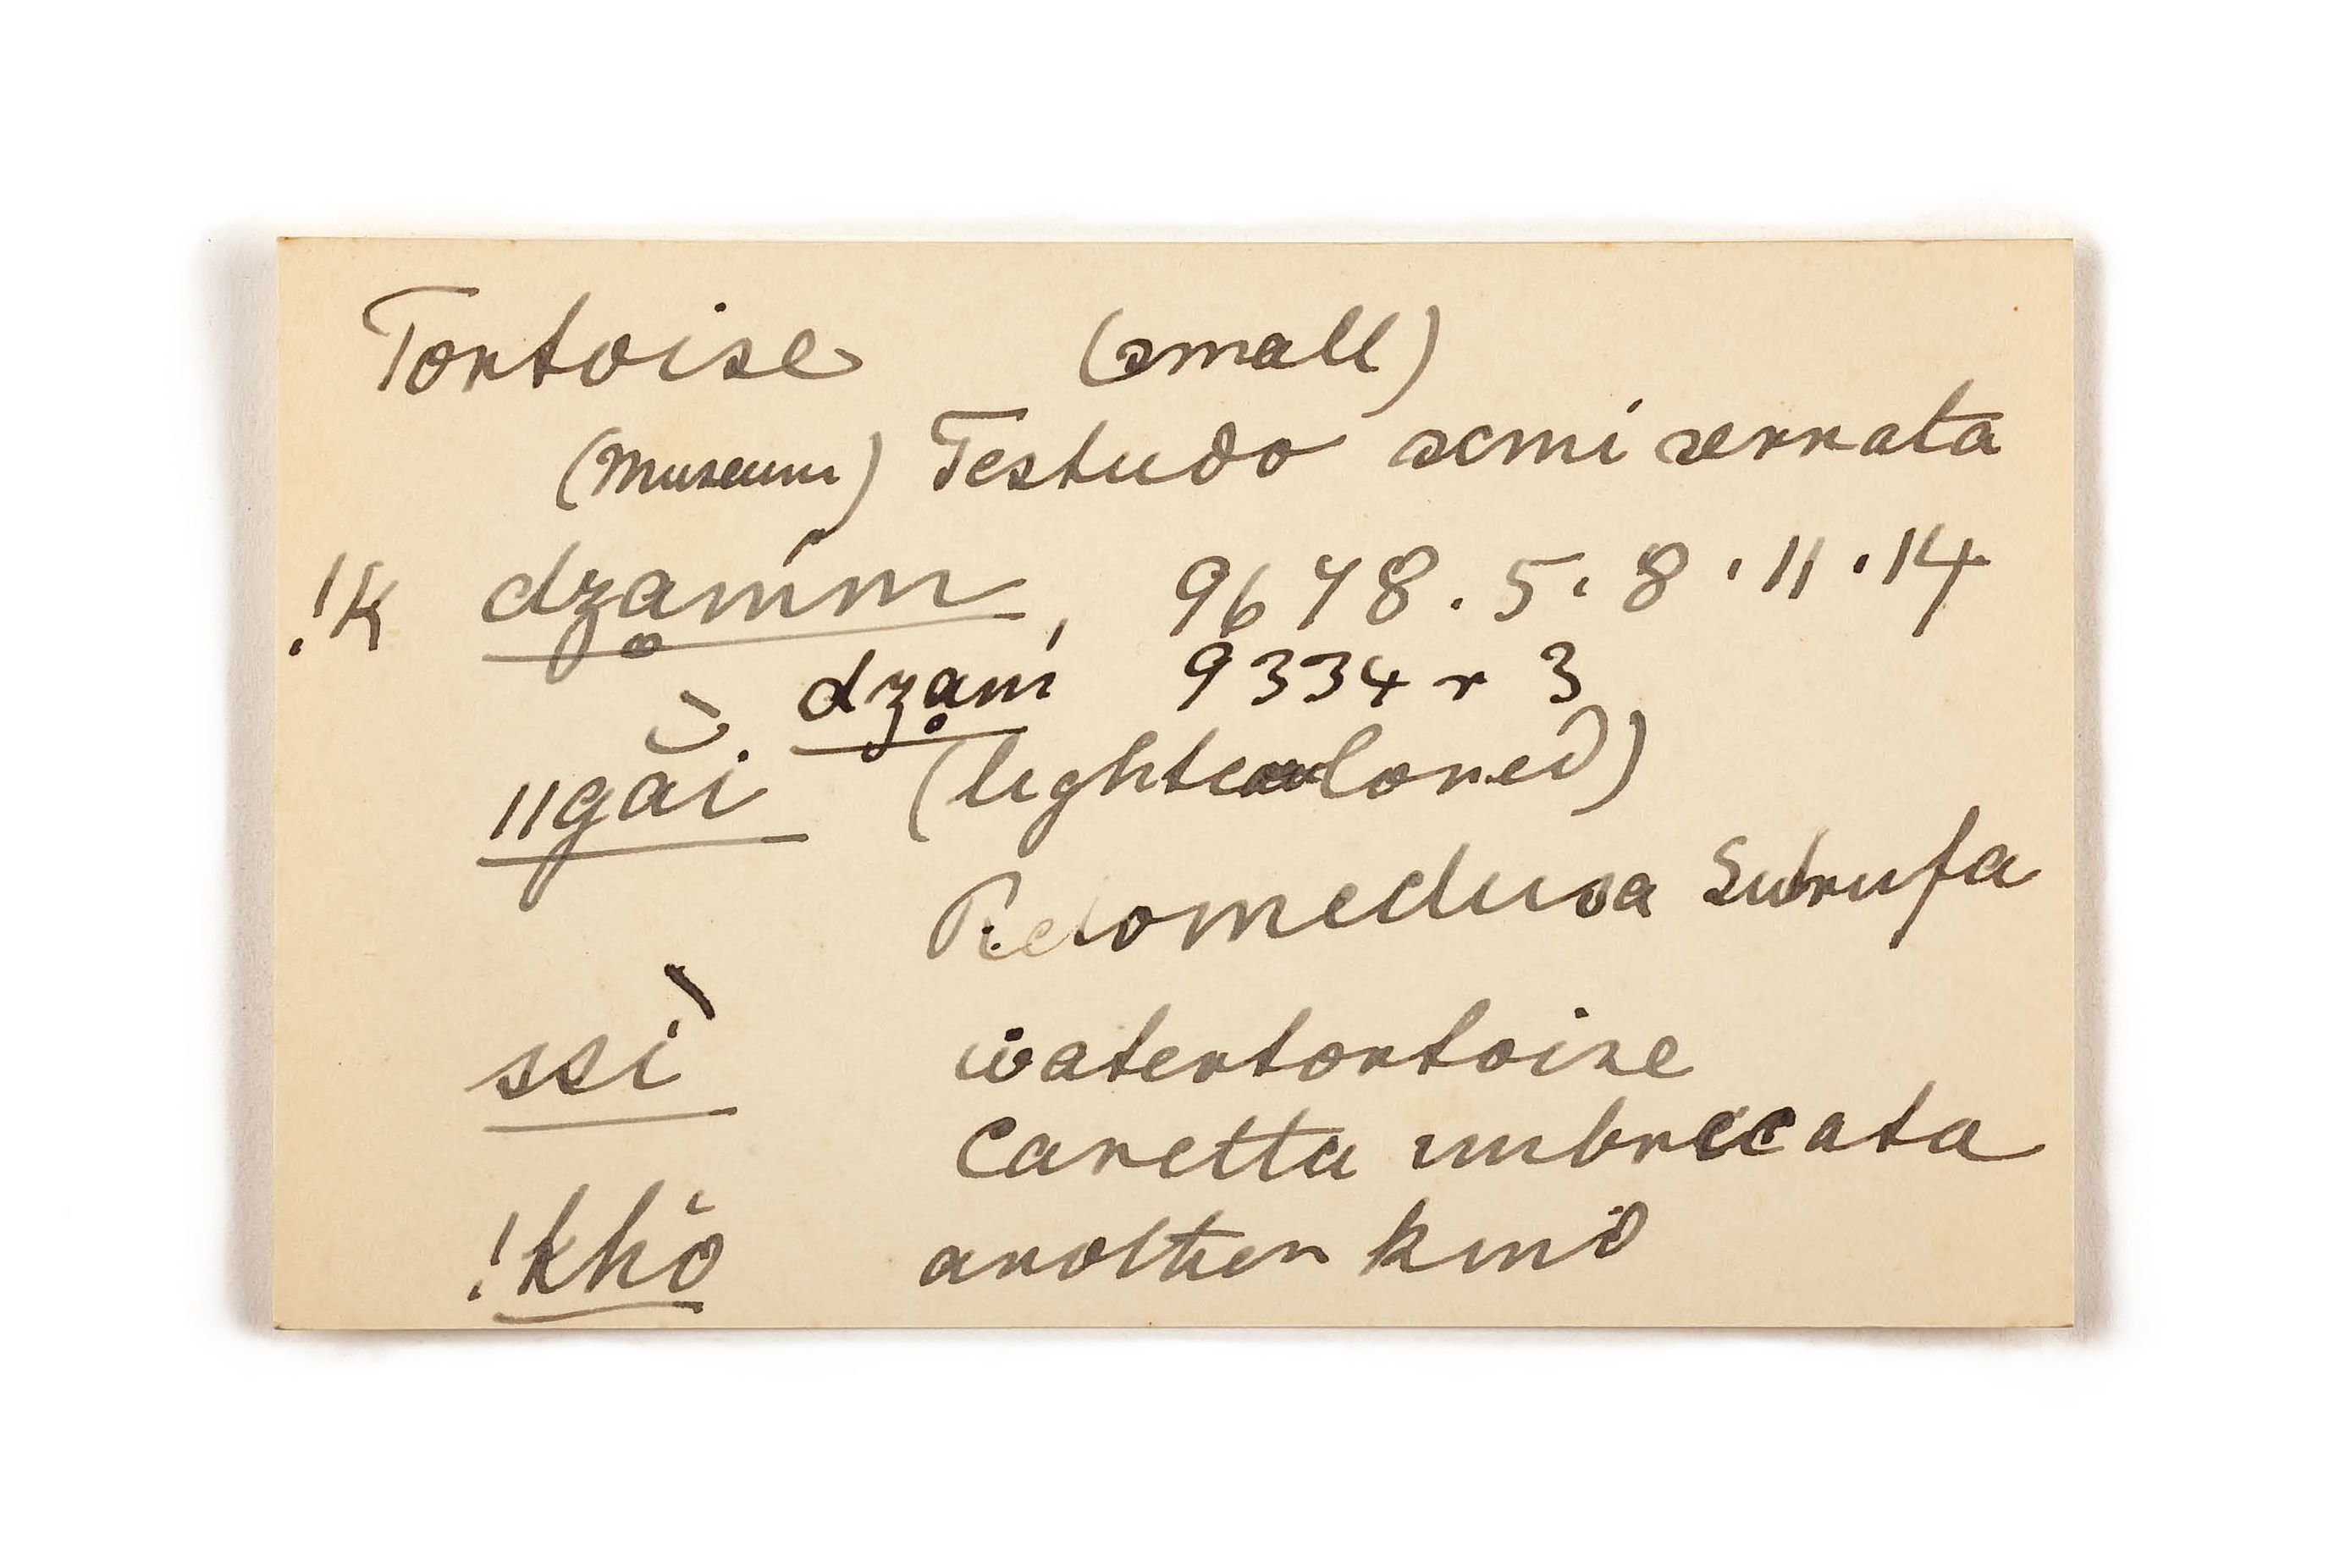 Tortoise (small)
(Museum) Testudo semi serrata
!K dzą̊mḿ, 9678.5.8.11.14
dzạḿ 9334 r 3
ǁgằi (lightcoloured)
Pelomedusa Subrufa
ssì watertortoise
Caretta imbrecata
!khō another kind